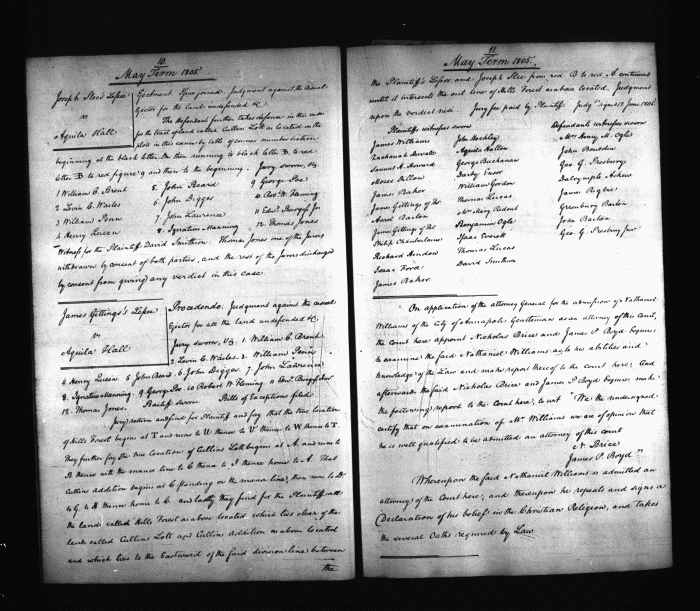 10
May Term 1805.
Joseph Slee's Lessee
vs
Aquila Hall
Ejectment. Issue joined. Judgment against the casual
Ejector for the land undefended &c.
The defendant further takes defence in this case
for the tract of land called Cullins Lott as located on the
plots in this cause by letter of courses number
beginning at the black letter A then running to black letter B to red
letter B to red figure 9 and then to the beginning. Jury sworn, Viz
1 William C. Brent 5. John Beard 9 George Poe
2. Levin C. Wailes 6 John Digges 10. Robt. W. Fleming
3 William Penn 7 John Lawrence 11 Edwd. Burgess Junr
4 Henry Queen 8. Ignatius Manning 12. Thomas Jones
Witness for the Plaintiff David Smithson. Thomas Jones one of the Jurors
withdrawn by consent of both parties, and the rest of the Jurors discharged
by consent from giving any verdict in this case.
James Gittings's Lessee
vs
Aquila Hall
Procedendo. Judgment against the casual
Ejector for all the land undefended &c.
Jury sworn, Viz. 1. William C. Brent
2 Levin C. Wailes. 3. William Penn
4 Henry Queen. 5 John Beard 6 John Digges 7 John Lawrence
8. Ignatius Manning. 9 George Poe. 10 Robert W. Fleming 11 Edwd. Burgess Junr
12. Thomas Jones. Bailiff sworn Bills of Exceptions filed
Jury return and find for Plaintiff and say that the true location
of Hills Forest begins at T and runs to U thence to V thence to W thence to T.
They further say the true location of Cullins Lott begins at A and runs to
B thence with the manor line to C thence to I thence home to A. That
Cullins Addition begins at C standing on the manor line, then runs to D.
to G. to H thence home to C. and lastly they find for the Plaintiff all
the lands called Hills Forest as above located which lies clear of the
lands called Cullins Lott and Cullins Addition as above located
and which lies to the Eastward of the said division line between
the
11
May Term 1805.
the Plaintiff's Lessor and Joseph Slee from red B to red A continued
until it intersects the out line of Hills Forest as above located. Judgment
upon the verdict nisi. Jury fee paid by Plaintiff. Judgt. agains 12 June 1805.
Plaintiffs witnesses sworn Defendants witnesses sworn
James Williams John Hockley Mr. Henry M. Ogle
Zachariah Duvall Aquila Halton John Bowdon
Samuel H. Howard George Buchanan Geo. G. Presbury
Moses Dillon Darby Ensor Dalrymple Askew
James Baker William Gordon James Rigbie
James Gittings of Thos Thomas Lucas Greenbury Barton
Aarol Barton Mrs. Mary Ridout John Barton
James Gittings of Jas Benjamin Ogle Geo. G. Presbury Junr
Philip Chamberlaine Isaac Everett
Richard Hendon Thomas Lucas
Isaac Ford David Smithson
James Baker
On application of the attorney General for the admission of Nathaniel
Williams of the City of Annapolis Gentleman as an attorney of this court,
the Court here appoint Nicholas Brice and James P. Boyd Esquires
to examine the said Nathaniel Williams as to his abilities and
knowledge of the Law and make report thereof to the court here; And
afterwards the said Nicholas Brice and James P Boyd Esquires make
the following report to the Court here, to wit "We the undersigned
certify that on examination of Mr Williams we are of opinion that
he is well qualified to be admitted an attorney of this court
N. Brice
James P. Boyd"
Whereupon the said Nathaniel Williams is admitted an
attorney of the Court here; and thereupon he repeats and signs a
Declaration of his belief in the Christian Religeon, and takes
the several Oaths required by Law